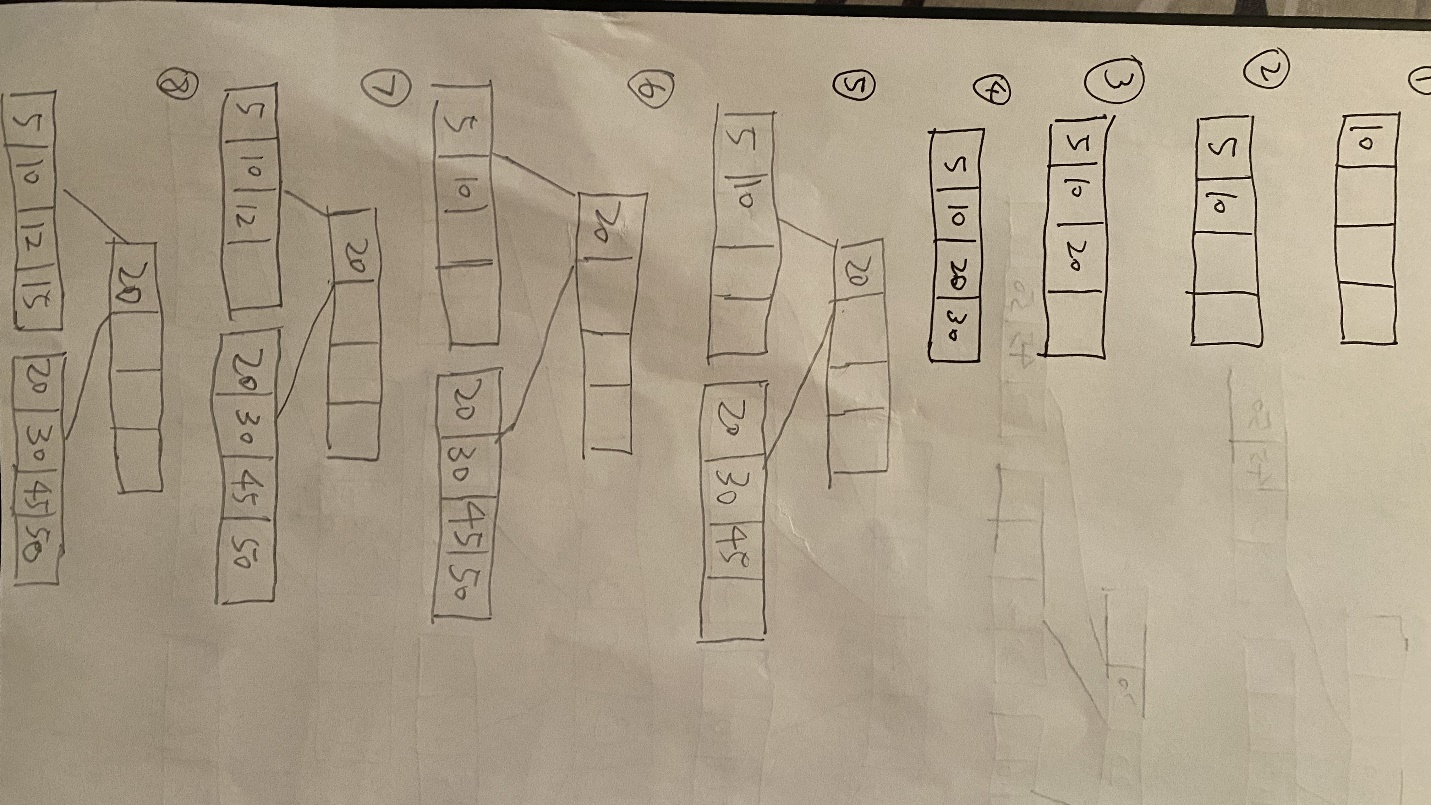 1
10
2
5 10
3
5 10 20
4
5 10 20 30
5
20
5 10
20 30 45
6
20
5 10
20 30 45 50
7
20
5 10 12
20 30 45 50
8
20
5 10 12 15
20 30 45 50